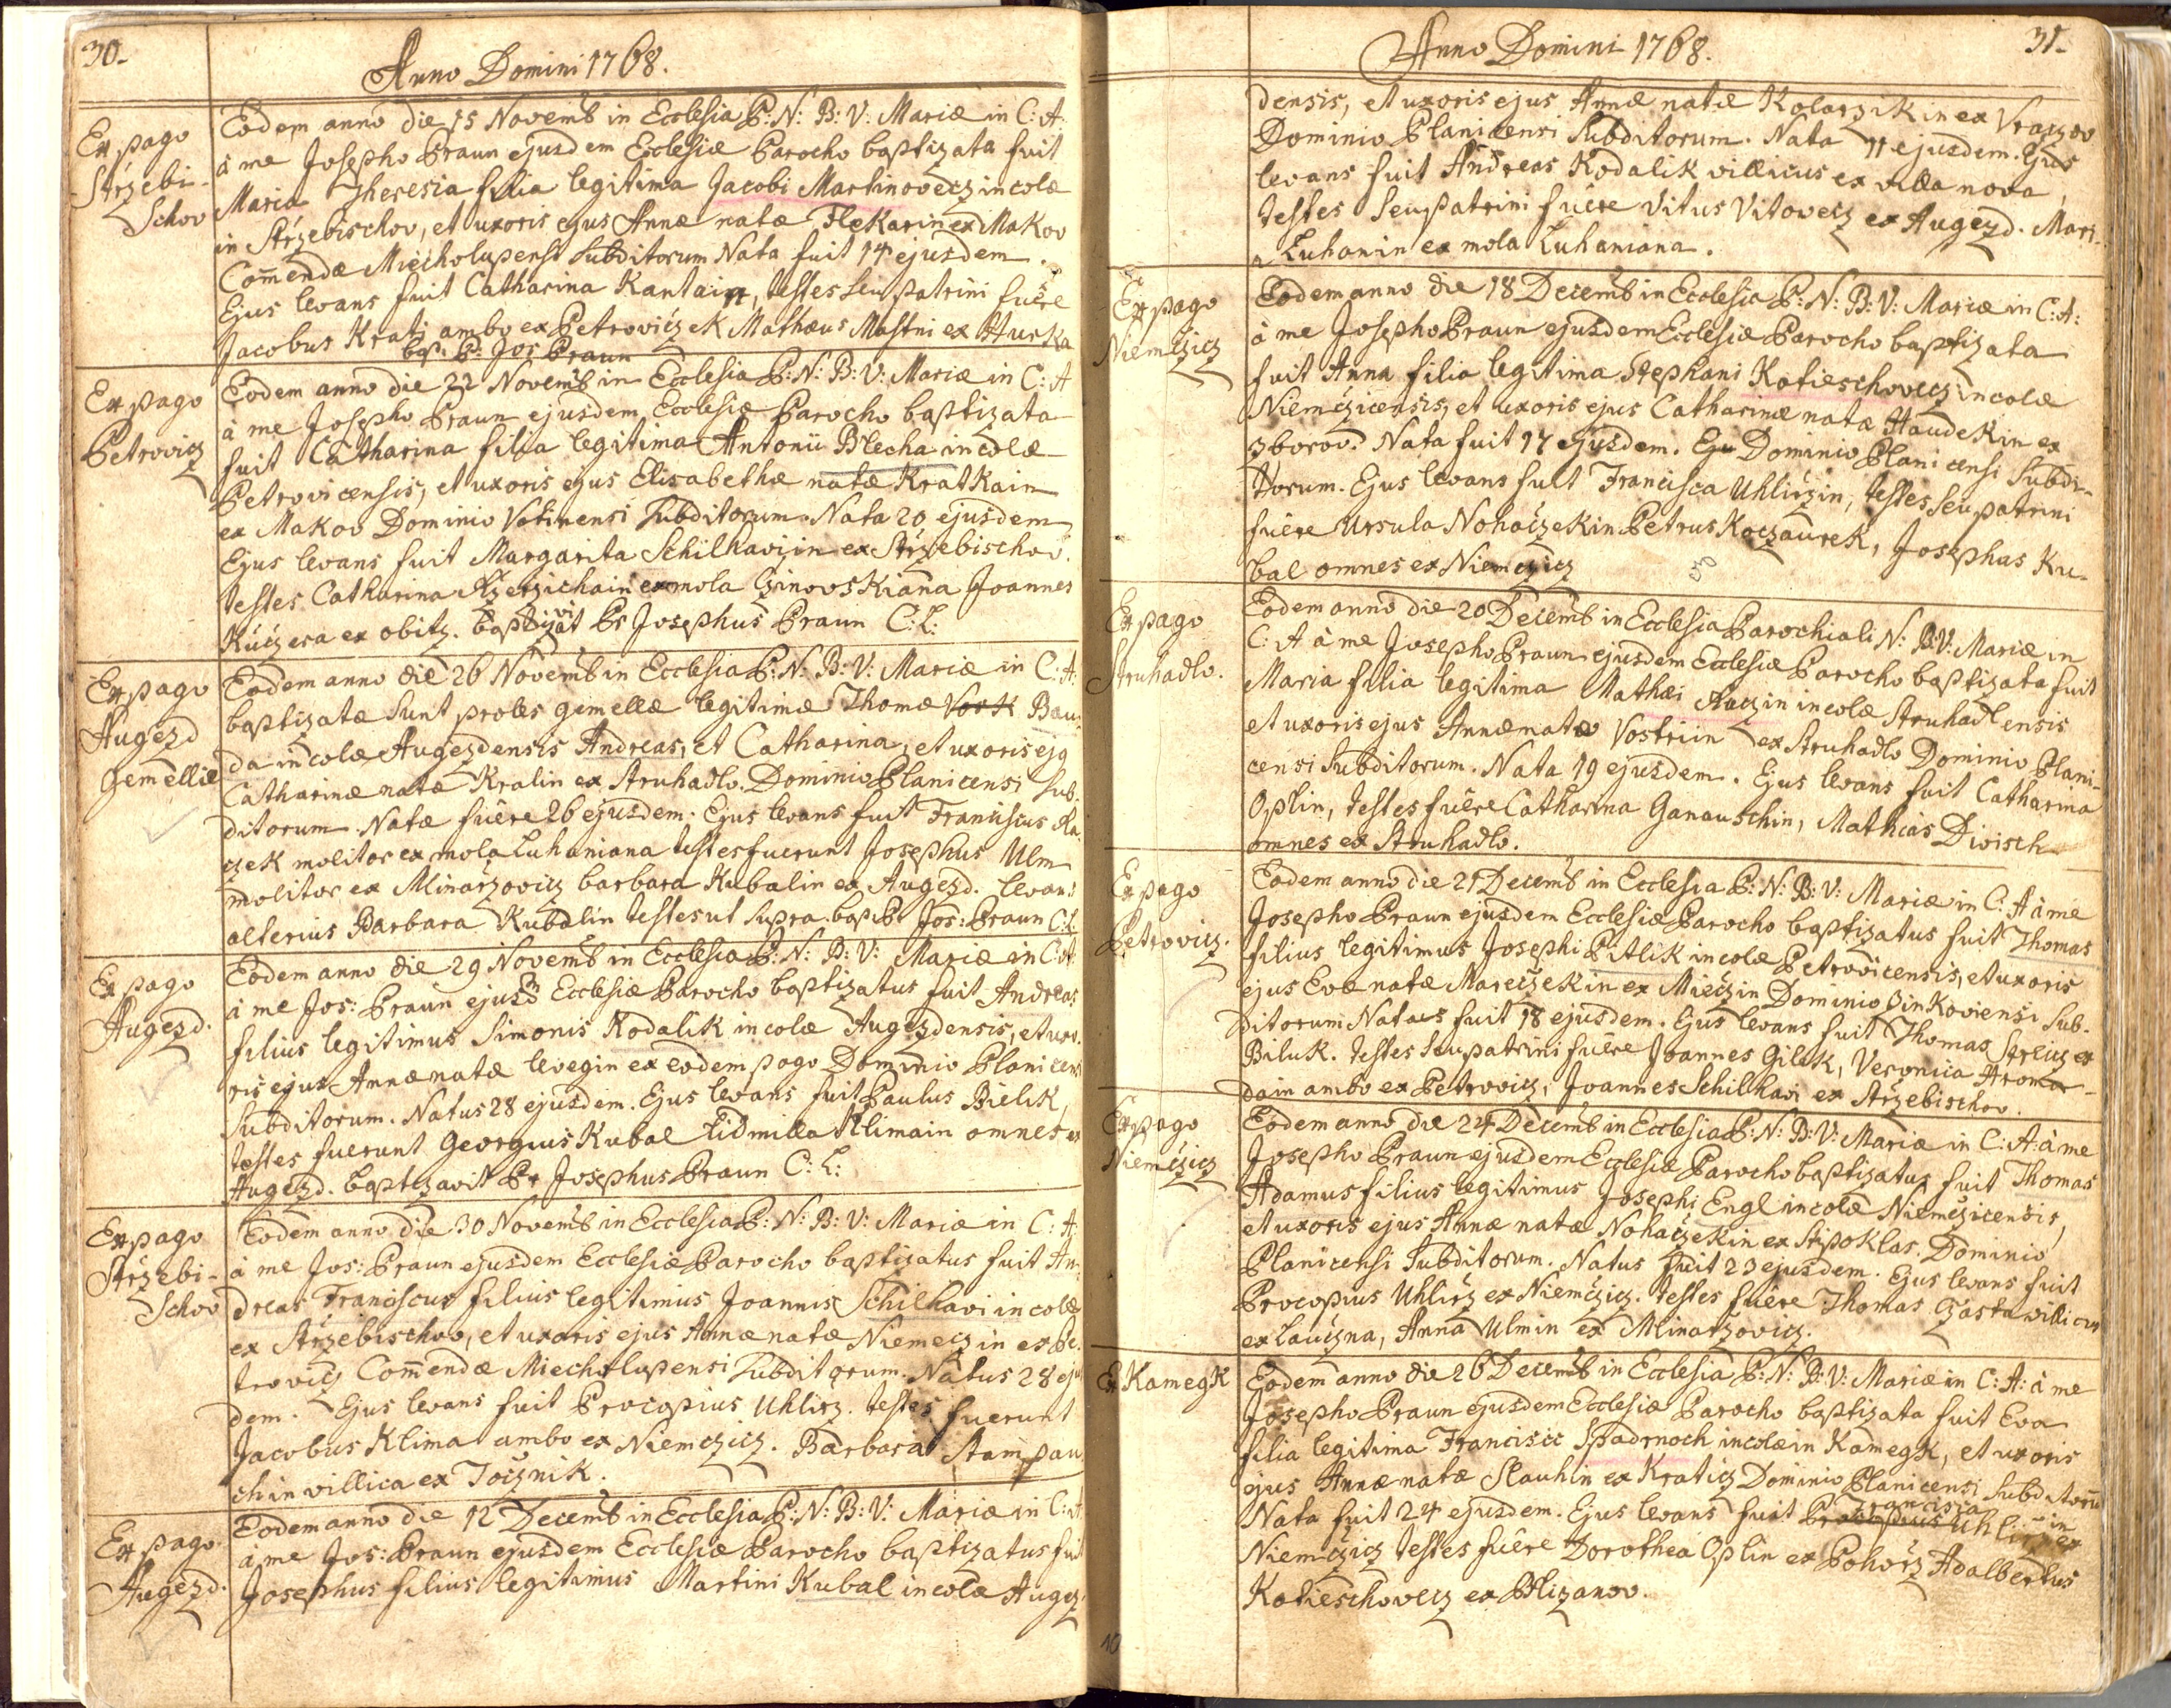 30.
Anno Domini 1768.
Ex pago
Strzebi-
schov
Eodem anno die 15 Novemb in Ecclesia P: N: B: V: Mariæ in C: A
à me Josepho Braun ejusdem Ecclesiæ Parocho baptizata fuit
Maria Theresia filia legitima Jacobi Martinovecz incolæ
in Strzebischov, et uxoris ejus Annæ natæ Flekarin ex Makov
Com̄endæ Miecholupensi Subditorum Nata fuit 14 ejusdem.
Ejus levans fuit Catharina Kantain, testes seu patrini fuêre
Jacobus Krati ambo ex Petroviczek Mathæus Mastni ex Hurka
bap: P: Jos Braun
Ex pago
Petrovicz
Eodem anno die 22 Novemb in Ecclesia P: N: B: V: Mariæ in C: A
à me Josepho Braun ejusdem Ecclesiæ Parocho baptizata
fuit Catharina filia legitima Antonii Blecha incolæ
Petrovicensis, et uxoris ejus Elisabethæ natæ Kratkain
ex Makov Dominio Votinensi Subditorum. Nata 20 ejusdem
Ejus levans fuit Margarita Schilhavijin ex Strzebischov.
testes Catharina ex mola Joannes
Kuczera ex obitz. baptizavit Pr Josephus Braun C: L:
Ex pago
Augezd
gemelliæ
Eodem anno die 26 Novemb in Ecclesia P: N: B: V: Mariæ in C: A:
baptizatæ sunt proles gemellæ legitimæ Thomæ Vork Bau-
da incolæ Augezdensis Andreas, et Catharina, et uxoris ejq
Catharinæ natæ Kralin ex Struhadlo. Dominio Planicensi Sub-
ditorum. Natæ fuêre 26 ejusdem. Ejus levans fuit Franciscus Ra-
czek molitor ex mola Luhaniana testes fuerunt Josephus Ulm
molitor ex Mlinarzovicz barbara Kubalin ex Augezd. levans
alterius Barbara Kubalin testes ut supra. bap: Pr Jos: Braun C:L.
Ex pago
Augezd.
Eodem anno die 29 Novemb in Ecclesia P: N: B: V: Mariæ in C: A:
à me Jos: Braun ejusd Ecclesiæ Parocho baptizatus fuit Andreas
filius legitimus Simonis Kodalik incolæ Augezdensis, et uxo-
ris ejus Annæ natæ levegin ex eodem pago Dominio Planicensi
Subditorum. Natus 28 ejusdem. Ejus levans fuit Paulus Bielik,
testes fuerunt Georgius Kubal Lidmilla Klimain omnes ex
Augezd. baptizavit Pr Josephus Braun C: L:
Ex pago
Strzebi-
schov
Eodem anno die 30 Novemb in Ecclesia P: N: B: V: Mariæ in C: A
à me Jos: Braun ejusdem Ecclesiæ Parocho baptizatus fuit An-
dreas Franciscus filius legitimus Joannis Schilhavi incolæ
ex Strzebischov, et uxoris ejus Annæ natæ Niemeczin ex Pe-
trovicz Com̄endæ Miecholupensi Subditorum. Natus 28 ejus
dem. Ejus levans fuit Procopius Uhlirz. testes fuerunt
Jacobus Klima ambo ex Niemczicz. Barbara Stampau
chin villica ex Tocznik.
Ex pago
Augezd.
Eodem anno die 12 Decemb in Ecclesia P: N: B: V: Mariæ in C: A
à me Jos: Braun ejusdem Ecclesiæ Parocho baptizatus fuit
Josephus filius legitimus Martini Kubal incolæ Augez-
Anno Domini 1768.
31.
densis, et uxoris ejus Annæ natæ Kolarzikin ex Vraczov
Dominio Planicensi Subditorum. Nata 11 ejusdem. Ejus
levans fuit Andreas Kodalik villicus ex villa nova,
testes seu patrini fuêre Vitus Vitovecz ex Augezd. Mari-
a Luhanin ex mola Luhaniana.
Ex pago
Niemczicz
Eodem anno die 18 Decemb in Ecclesia P: N: B: V: Mariæ in C: A:
à me Josepho Braun ejusdem Ecclesiæ Parocho baptizata
fuit Anna filia legitima Stephani Kotieschovecz incolæ
Niemczicensis, et uxoris ejus Catharinæ natæ Haudekin ex
Zborov. Nata fuit 17 ejusdem. Eju Dominio Planicensi Subdi-
torum. Ejus levans fuit Francisca Uhlirzin, testes seu patrini
fuêre Ursula Nohaczekin Petrus Koczaurek, Josephus Ku-
bal omnes ex Niemczicz
Ex pago
Struhadlo.
Eodem anno die 20 Decemb in Ecclesia Parochiali N: B: V: Mariæ in
C: A à me Josepho Braun ejusdem Ecclesiæ Parocho baptizata fuit
Maria filia legitima Mathæi incolæ Struhadlensis
et uxoris ejus Annæ natæ Vostriin ex Struhadlo Dominio Plani-
censi Subditorum. Nata 19 ejusdem. Ejus levans fuit Catharina
Oplin, testes fuêre Catharina Ganauschin, Mathias Divisch
omnes ex Struhadlo.
Ex pago
Petrovicz.
Eodem anno die 21 Decemb in Ecclesia P: N: B: V: Mariæ in C: A à me
Josepho Braun ejusdem Ecclesiæ Parocho baptizatus fuit Thomas
filius legitimus Josephi Pitlik incolæ Petrovicensis, et uxoris
ejus Evæ natæ Mareczekin ex Mieczin Dominio Zinkoviensi Sub-
ditorum Natus fuit 18 ejusdem. Ejus levans fuit Thomas Streicz ex
Biluk. testes seu patrini fuêre Joannes Gilek, Veronica Hroma-
dain ambo ex Petrovicz, Joannes Schilhavi ex Strzebischov.
Ex pago
Niemczicz
Eodem anno die 24 Decemb in Ecclesia P: N: B: V: Mariæ in C: A: à me
Josepho Braun ejusdem Ecclesiæ Parocho baptizatus fuit Thomas
Adamus filius legitimus Josephi Engl incolæ Niemczicensis,
et uxoris ejus Annæ natæ Nohaczekin ex Stipoklas. Dominio
Planicensi Subditorum. Natus fuit 23 ejusdem. Ejus levans fuit
Procopius Uhlirz ex Niemczicz. testes fuêre Thomas Czasta villicus
ex Lauczna, Anna Ulmin ex Mlinarzovicz.
Ex Kamegk
Eodem anno die 26 Decemb in Ecclesia P: N: B: V: Mariæ in C: A: à me
Josepho Braun ejusdem Ecclesiæ Parocho baptizata fuit Eva
filia legitima Francisci Spadrnoch incolæ in Kamegk, et uxoris
ejus Annæ natæ Slauhin ex Kraticz Dominio Planicensi Subditorū
Nata fuit 24 ejusdem. Ejus levans fuit Procopius Francisca Uhlirzin ex
Niemczicz testes fuêre Dorothea Oplin ex Pohorz Adalbertus
Kotieschovecz ex Blizanov.